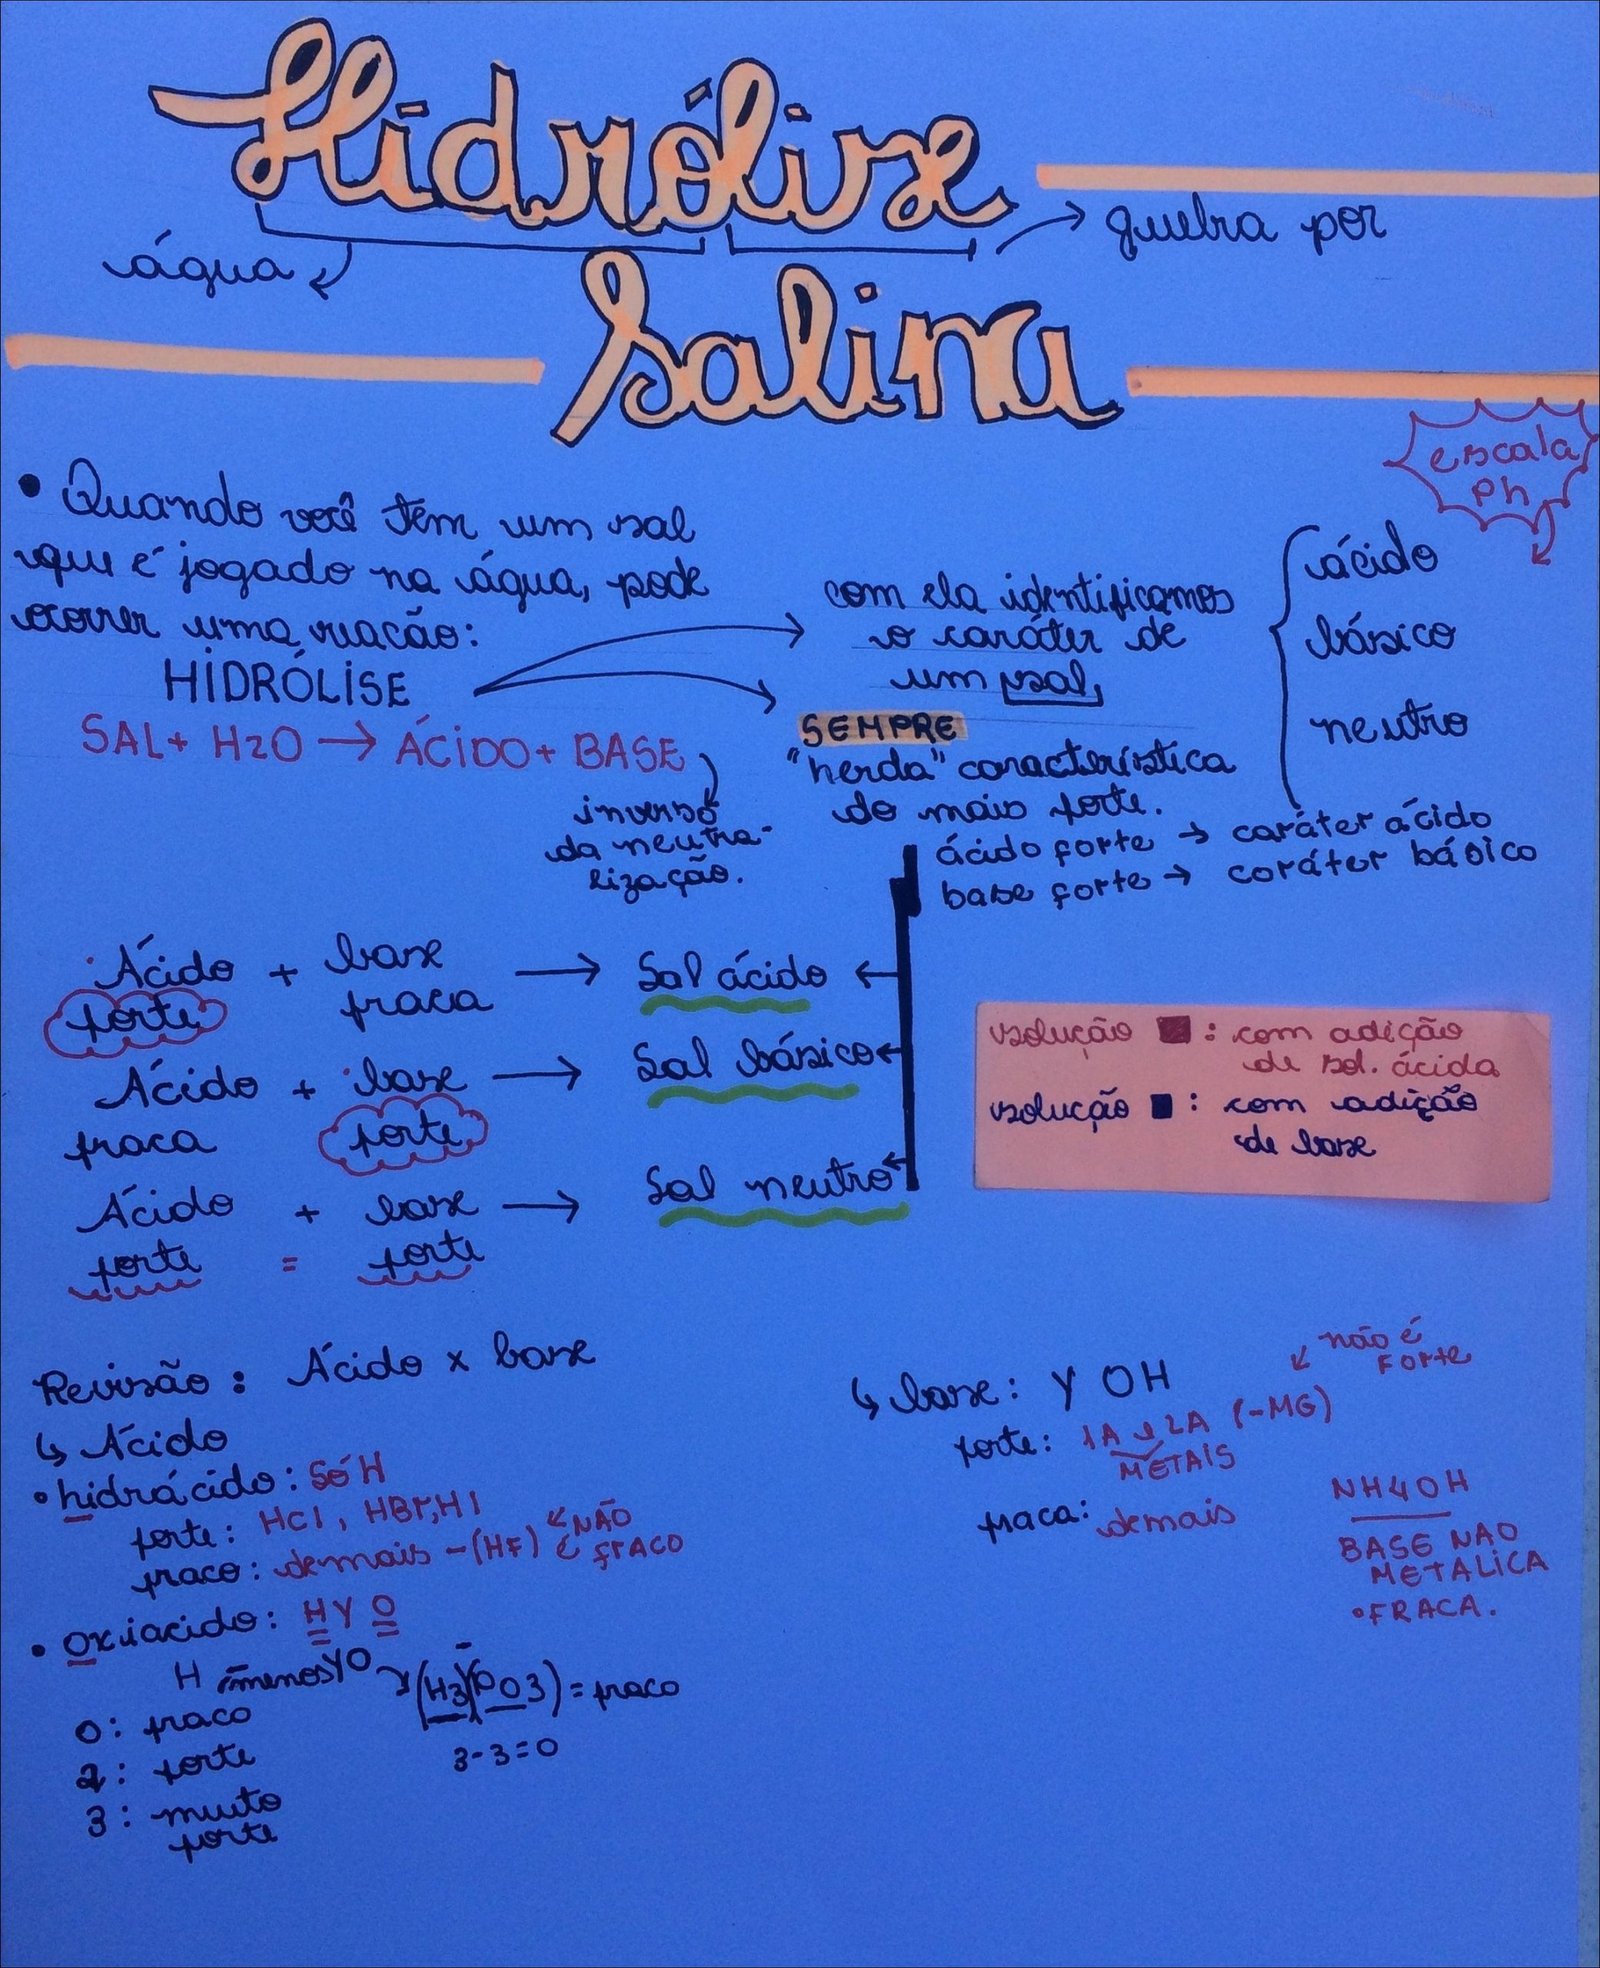 Hidrólise
quebra por
água
Salina
escala
ph
• Quando você tem um sal
que é jogado na água, pode
ocorrer uma reação:
HIDRÓLISE
SAL + H2O → ÁCIDO + BASE
inverso
da neutra-
lização.
com ela identificamos
o caráter de
um sal,
ácido
básico
neutro
SEMPRE
"herda" característica
do mais forte.
ácido forte → caráter ácido
base forte → caráter básico
Ácido + base → Sal ácido
forte fraca
Ácido + base → Sal básico
fraca forte
Ácido + base → Sal neutro
forte = forte
solução ■ : com adição
de sol. ácida
solução ■ : com adição
de base
Revisão: Ácido x base
↳ Ácido
• hidrácido: Só H
forte: HCl, HBr, HI
fraco: demais - (HF) ← NÃO
é fraco
• oxiácido: H Y O
H menos YO (H3)(PO3) = fraco
3-3=0
0: fraco
2: forte
3: muito
forte
↳ base: Y OH
não é
forte
forte: 1A e 2A (-MG)
METAIS
fraca: demais
NH4OH
BASE NAO
METALICA
• FRACA.